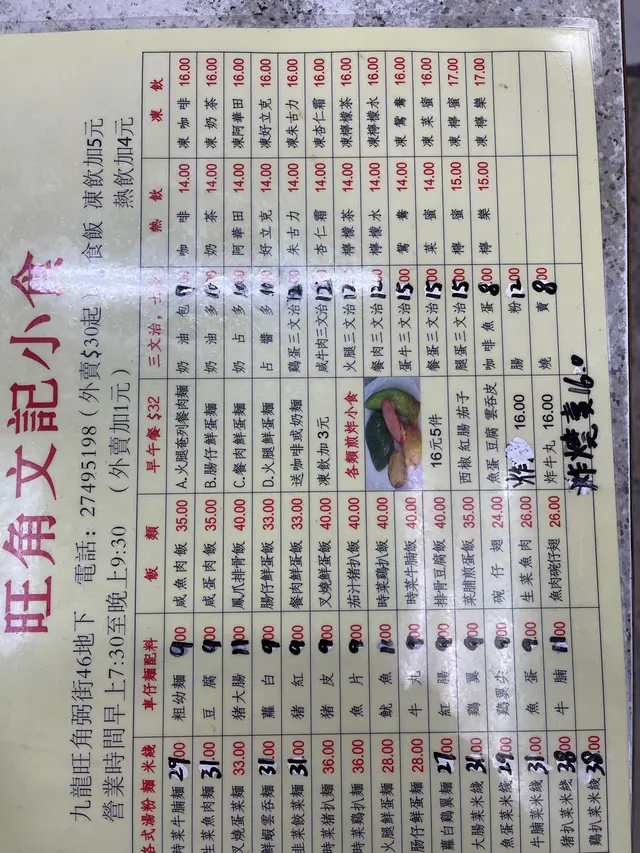 旺角文記小食
九龍旺角弼街46地下 電話：27495198（外賣$30起） 食飯 凍飲加5元
營業時間早上7:30至晚上9:30 （外賣加1元） 熱飲加4元
各式湯粉麵米綫 車仔麵配料 飯類 早午餐 $32 三文治, 熱飲 凍飲
時菜牛腩麵 29.00 粗幼麵 9.00 咸魚肉飯 35.00 A.火腿奄列餐肉麵 奶油包 9.00 咖啡 14.00 凍咖啡 16.00
生菜魚肉麵 31.00 豆腐 9.00 咸蛋肉飯 35.00 B.腸仔鮮蛋麵 奶油多 10.00 奶茶 14.00 凍奶茶 16.00
叉燒蛋菜麵 33.00 猪大腸 11.00 鳳爪排骨飯 40.00 C.餐肉鮮蛋麵 奶占多 10.00 阿華田 14.00 凍阿華田 16.00
鮮蝦雲吞麵 31.00 蘿白 9.00 腸仔鮮蛋飯 33.00 D.火腿鮮蛋麵 占醬多 10.00 好立克 14.00 凍好立克 16.00
韭菜餃菜麵 31.00 猪紅 9.00 餐肉鮮蛋飯 33.00 送咖啡或奶麵 鷄蛋三文治 12.00 朱古力 14.00 凍朱古力 16.00
時菜猪扒麵 36.00 猪皮 9.00 叉燒鮮蛋飯 40.00 凍飲加3元 咸牛肉三文治 12.00 杏仁霜 14.00 凍杏仁霜 16.00
時菜鷄扒麵 36.00 魚片 9.00 茄汁猪扒飯 40.00 各類煎炸小食 火腿三文治 12.00 檸檬茶 14.00 凍檸檬茶 16.00
火腿鮮蛋麵 28.00 魷魚 時菜鷄扒飯 40.00 餐肉三文治 12.00 檸檬水 14.00 凍檸檬水 16.00
腸仔鮮蛋麵 28.00 牛丸 9.00 時菜牛腩飯 40.00 蛋牛三文治 15.00 鴛鴦 14.00 凍鴛鴦 16.00
蘿白鷄翼麵 27.00 紅腸 9.00 排骨豆腐飯 40.00 16元6件 餐蛋三文治 15.00 菜蜜 14.00 凍菜蜜 16.00
大腸菜米綫 31.00 鷄翼 9.00 菜脯煎蛋飯 35.00 西椒 紅腸 茄子 腿蛋三文治 15.00 檸蜜 15.00 凍檸蜜 17.00
魚蛋菜米綫 29.00 鷄翼尖 9.00 碗仔翅 24.00 魚蛋 豆腐 雲吞皮 咖啡魚蛋 8.00 檸樂 15.00 凍檸樂 17.00
牛腩菜米綫 31.00 魚蛋 9.00 生菜魚肉 26.00 炸 16.00 腸粉 12.00
猪扒菜米綫 38.00 牛腩 11.00 魚肉碗仔翅 26.00 炸牛丸 16.00 燒賣 8.00
鷄扒菜米綫 38.00 炸燒賣 16.0